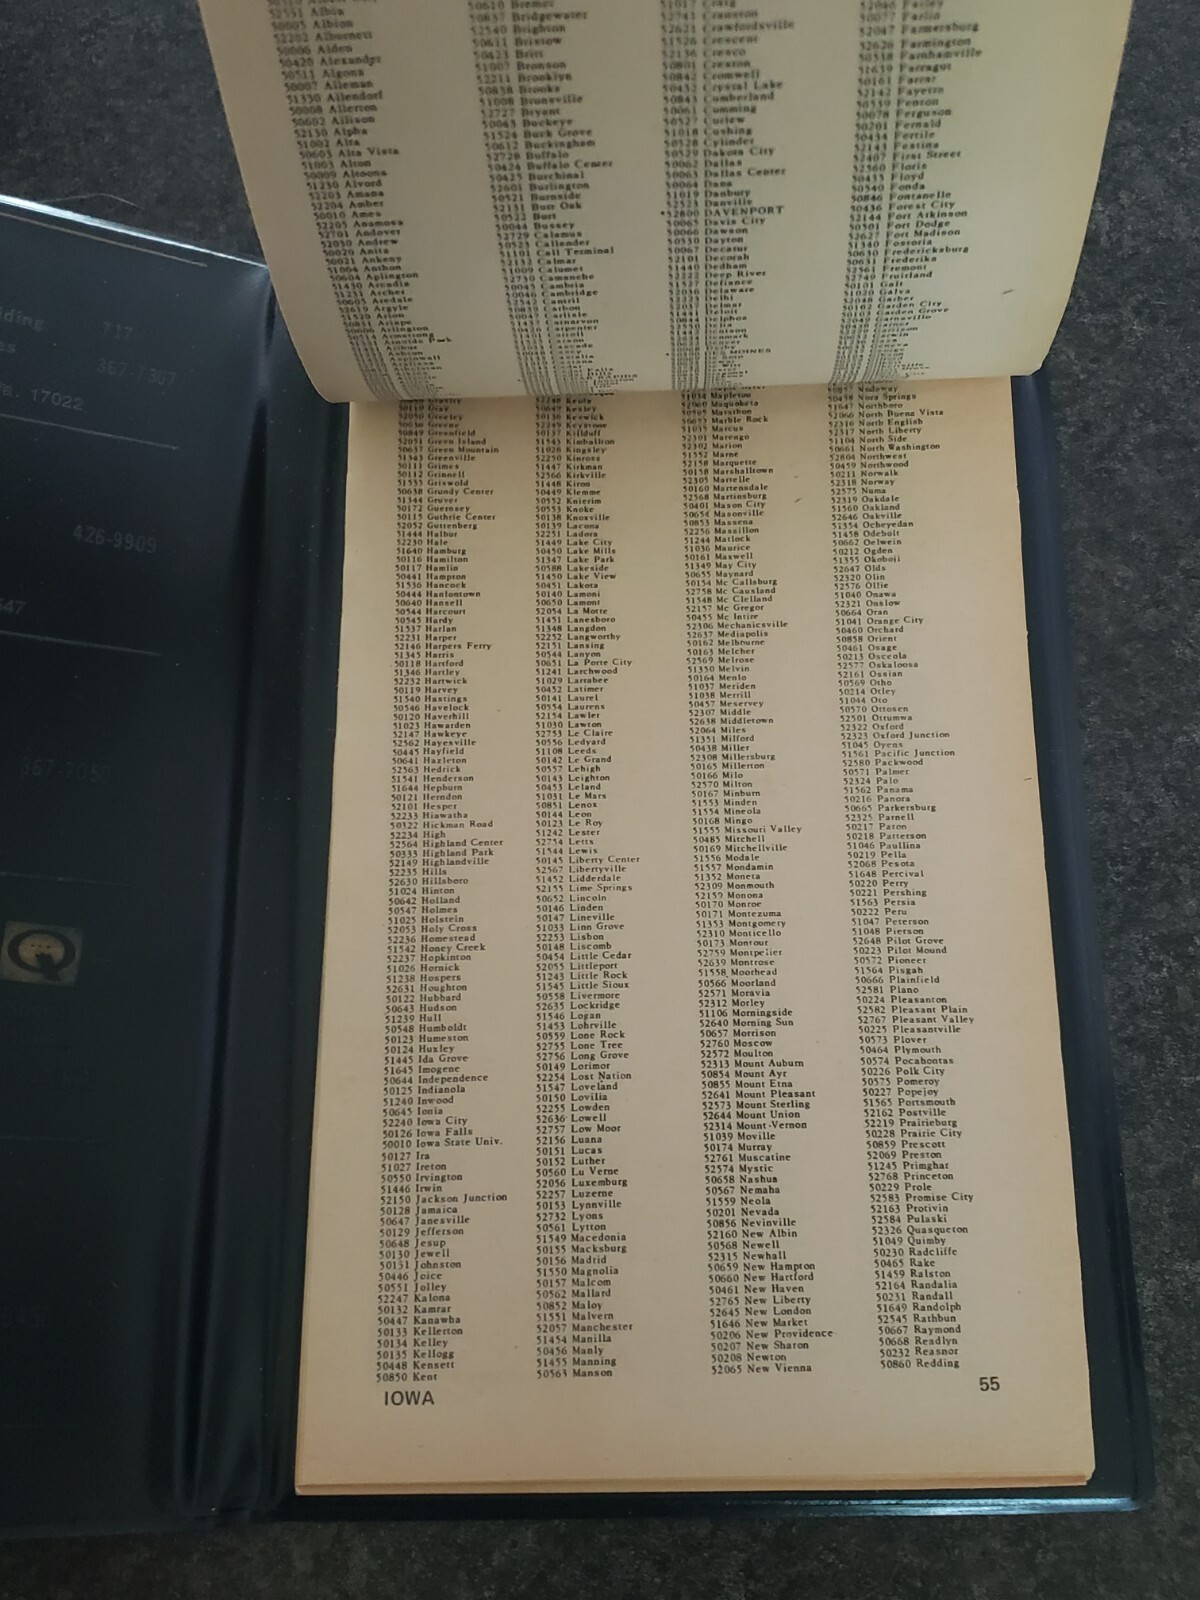 lding 717
367-7367
Pa. 17022
426-9909
547
367-7050
Albia
50005 Albion
52202 Alburnett
50006 Alden
50420 Alexander
50511 Algona
50007 Alleman
51330 Allendorf
50008 Allerton
50602 Allison
52130 Alpha
51002 Alta
50603 Alta Vista
51003 Alton
50009 Altoona
51230 Alvord
52203 Amana
52204 Amber
50010 Ames
52205 Anamosa
52701 Andover
52030 Andrew
50020 Anita
50021 Ankeny
51004 Anthon
50604 Aplington
51430 Arcadia
51231 Archer
50605 Aredale
52619 Argyle
51520 Arion
Arispe
Arlington
50610 Bremer
50837 Bridgewater
52540 Brighton
50611 Bristow
50423 Britt
51007 Bronson
52211 Brooklyn
50838 Brooks
51008 Brunsville
52727 Bryant
50043 Buckeye
51524 Buck Grove
50612 Buckingham
52728 Buffalo
50424 Buffalo Center
50425 Burchinal
52601 Burlington
50521 Burnside
52131 Burr Oak
50522 Burt
50044 Bussey
52729 Calamus
50523 Callender
51101 Call Terminal
52132 Calmar
51009 Calumet
52730 Camanche
50045 Cambria
50046 Cambridge
52542 Cantril
Carbon
50047 Carlisle
51017 Craig
52741 Cranston
52621 Crawfordsville
51526 Crescent
52136 Cresco
50801 Creston
50842 Cromwell
50432 Crystal Lake
50843 Cumberland
50061 Cumming
50527 Curlew
51018 Cushing
50528 Cylinder
50529 Dakota City
50062 Dallas
50063 Dallas Center
50064 Dana
51019 Danbury
52523 Danville
*52800 DAVENPORT
50065 Davis City
50066 Dawson
50530 Dayton
50067 Decatur
52101 Decorah
51440 Dedham
52222 Deep River
51527 Defiance
52036 Delaware
Delhi
Delmar
Deloit
Delphos
Delta
52046 Farley
50077 Farlin
52047 Farmersburg
52626 Farmington
50538 Farnhamville
51639 Farragut
50161 Farrar
52142 Fayette
50539 Fenton
50078 Ferguson
50201 Fernald
50434 Fertile
52143 Festina
52407 First Street
52560 Floris
50435 Floyd
50540 Fonda
50846 Fontanelle
50436 Forest City
52144 Fort Atkinson
50501 Fort Dodge
52627 Fort Madison
51340 Fostoria
50630 Fredericksburg
50631 Frederika
52561 Fremont
52749 Fruitland
50101 Galt
51020 Galva
52048 Garber
50102 Garden City
50103 Garden Grove
Garnavillo
50110 Gray
52050 Greeley
50636 Greene
50849 Greenfield
52051 Green Island
50637 Green Mountain
51343 Greenville
50111 Grimes
50112 Grinnell
51535 Griswold
50638 Grundy Center
51344 Gruver
50172 Guernsey
50115 Guthrie Center
52052 Guttenberg
51444 Halbur
52230 Hale
51640 Hamburg
50116 Hamilton
50117 Hamlin
50441 Hampton
51536 Hancock
50444 Hanlontown
50640 Hansell
50544 Harcourt
50545 Hardy
51537 Harlan
52231 Harper
52146 Harpers Ferry
51345 Harris
50118 Hartford
51346 Hartley
52232 Hartwick
50119 Harvey
51540 Hastings
50546 Havelock
50120 Haverhill
51023 Hawarden
52147 Hawkeye
52562 Hayesville
50445 Hayfield
50641 Hazleton
52563 Hedrick
51541 Henderson
51644 Hepburn
50121 Herndon
52101 Hesper
52233 Hiawatha
50322 Hickman Road
52234 High
52564 Highland Center
50333 Highland Park
52149 Highlandville
52235 Hills
52630 Hillsboro
51024 Hinton
50642 Holland
50547 Holmes
51025 Holstein
52053 Holy Cross
52236 Homestead
51542 Honey Creek
52237 Hopkinton
51026 Hornick
51238 Hospers
52631 Houghton
50122 Hubbard
50643 Hudson
51239 Hull
50548 Humboldt
50123 Humeston
50124 Huxley
51445 Ida Grove
51645 Imogene
50644 Independence
50125 Indianola
51240 Inwood
50645 Ionia
52240 Iowa City
50126 Iowa Falls
50010 Iowa State Univ.
50127 Ira
51027 Ireton
50550 Irvington
51446 Irwin
52150 Jackson Junction
50128 Jamaica
50647 Janesville
50129 Jefferson
50648 Jesup
50130 Jewell
50131 Johnston
50446 Joice
50551 Jolley
52247 Kalona
50132 Kamrar
50447 Kanawha
50133 Kellerton
50134 Kelley
50135 Kellogg
50448 Kensett
50850 Kent
52248 Keota
50647 Kesley
50136 Keswick
52249 Keystone
50137 Killduff
51543 Kimballton
51028 Kingsley
52250 Kinross
51447 Kirkman
52566 Kirkville
51448 Kiron
50449 Klemme
50552 Knierim
50553 Knoke
50138 Knoxville
50139 Lacona
52251 Ladora
51449 Lake City
50450 Lake Mills
51347 Lake Park
50588 Lakeside
51450 Lake View
50451 Lakota
50140 Lamoni
50650 Lamont
52054 La Motte
51451 Lanesboro
51348 Langdon
52252 Langworthy
52151 Lansing
50544 Lanyon
50651 La Porte City
51241 Larchwood
51029 Larrabee
50452 Latimer
50141 Laurel
50554 Laurens
52154 Lawler
51030 Lawton
52753 Le Claire
50556 Ledyard
51108 Leeds
50142 Le Grand
50557 Lehigh
50143 Leighton
50453 Leland
51031 Le Mars
50851 Lenox
50144 Leon
50123 Le Roy
51242 Lester
52754 Letts
51544 Lewis
50145 Liberty Center
52567 Libertyville
51452 Lidderdale
52155 Lime Springs
50652 Lincoln
50146 Linden
50147 Lineville
51033 Linn Grove
52253 Lisbon
50148 Liscomb
50454 Little Cedar
52055 Littleport
51243 Little Rock
51545 Little Sioux
50558 Livermore
52635 Lockridge
51546 Logan
51453 Lohrville
50559 Lone Rock
52755 Lone Tree
52756 Long Grove
50149 Lorimor
52254 Lost Nation
51547 Loveland
50150 Lovilia
52255 Lowden
52636 Lowell
52757 Low Moor
52156 Luana
50151 Lucas
50152 Luther
50560 Lu Verne
52056 Luxemburg
52257 Luzerne
50153 Lynnville
52732 Lyons
50561 Lytton
51549 Macedonia
50155 Macksburg
50156 Madrid
51550 Magnolia
50157 Malcom
50562 Mallard
50852 Maloy
51551 Malvern
52057 Manchester
51454 Manilla
50456 Manly
51455 Manning
50563 Manson
51034 Mapleton
52060 Maquoketa
50565 Marathon
50653 Marble Rock
51035 Marcus
52301 Marengo
52302 Marion
51552 Marne
52158 Marquette
50158 Marshalltown
52305 Martelle
50160 Martensdale
52568 Martinsburg
50401 Mason City
50654 Masonville
50853 Massena
52256 Massillon
51244 Matlock
51036 Maurice
50161 Maxwell
51349 May City
50655 Maynard
50154 Mc Callsburg
52758 Mc Causland
51548 Mc Clelland
52157 Mc Gregor
50455 Mc Intire
52306 Mechanicsville
52637 Mediapolis
50162 Melbourne
50163 Melcher
52569 Melrose
51350 Melvin
50164 Menlo
51037 Meriden
51038 Merrill
50457 Meservey
52307 Middle
52638 Middletown
52064 Miles
51351 Milford
50438 Miller
52308 Millersburg
50165 Millerton
50166 Milo
52570 Milton
50167 Minburn
51553 Minden
51554 Mineola
50168 Mingo
51555 Missouri Valley
50485 Mitchell
50169 Mitchellville
51556 Modale
51557 Mondamin
51352 Moneta
52309 Monmouth
52159 Monona
50170 Monroe
50171 Montezuma
51353 Montgomery
52310 Monticello
50173 Montour
52759 Montpelier
52639 Montrose
51558 Moorhead
50566 Moorland
52571 Moravia
52312 Morley
51106 Morningside
52640 Morning Sun
50657 Morrison
52760 Moscow
52572 Moulton
52313 Mount Auburn
50854 Mount Ayr
50855 Mount Etna
52641 Mount Pleasant
52573 Mount Sterling
52644 Mount Union
52314 Mount Vernon
51039 Moville
50174 Murray
52761 Muscatine
52574 Mystic
50658 Nashua
50567 Nemaha
51559 Neola
50201 Nevada
50856 Nevinville
52160 New Albin
50568 Newell
52315 Newhall
50659 New Hampton
50660 New Hartford
50461 New Haven
52765 New Liberty
52645 New London
51646 New Market
50206 New Providence
50207 New Sharon
50208 Newton
52065 New Vienna
50857 Nodaway
50458 Nora Springs
51647 Northboro
52066 North Buena Vista
52316 North English
52317 North Liberty
51104 North Side
50661 North Washington
52804 Northwest
50459 Northwood
50211 Norwalk
52318 Norway
52575 Numa
52319 Oakdale
51560 Oakland
52646 Oakville
51354 Ocheyedan
51458 Odebolt
50662 Oelwein
50212 Ogden
51355 Okoboji
52647 Olds
52320 Olin
52576 Ollie
51040 Onawa
52321 Onslow
50664 Oran
51041 Orange City
50460 Orchard
50858 Orient
50461 Osage
50213 Osceola
52577 Oskaloosa
52161 Ossian
50569 Otho
50214 Otley
51044 Oto
50570 Ottosen
52501 Ottumwa
52322 Oxford
52323 Oxford Junction
51045 Oyens
51561 Pacific Junction
52580 Packwood
50571 Palmer
52324 Palo
51562 Panama
50216 Panora
50665 Parkersburg
52325 Parnell
50217 Paton
50218 Patterson
51046 Paullina
50219 Pella
52068 Peosta
51648 Percival
50220 Perry
50221 Pershing
51563 Persia
50222 Peru
51047 Peterson
51048 Pierson
52648 Pilot Grove
50223 Pilot Mound
50572 Pioneer
51564 Pisgah
50666 Plainfield
52581 Plano
50224 Pleasanton
52582 Pleasant Plain
52767 Pleasant Valley
50225 Pleasantville
50573 Plover
50464 Plymouth
50574 Pocahontas
50226 Polk City
50575 Pomeroy
50227 Popejoy
51565 Portsmouth
52162 Postville
52219 Prairieburg
50228 Prairie City
50859 Prescott
52069 Preston
51245 Primghar
52768 Princeton
50229 Prole
52583 Promise City
52163 Protivin
52584 Pulaski
52326 Quasqueton
51049 Quimby
50230 Radcliffe
50465 Rake
51459 Ralston
52164 Randalia
50231 Randall
51649 Randolph
52545 Rathbun
50667 Raymond
50668 Readlyn
50232 Reasnor
50860 Redding
IOWA 55